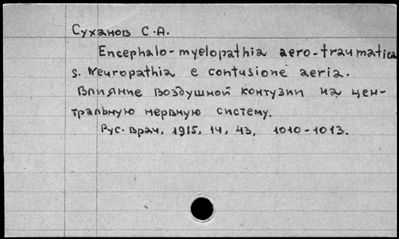 Суханов С.А.
Encephalo-myelopathia aero-traumatica
s. Neuropathia e contusione aeria.
Влияние воздушной контузии на цен-
тральную нервную систему.
Рус. врач, 1915, 14, 43, 1010-1013.